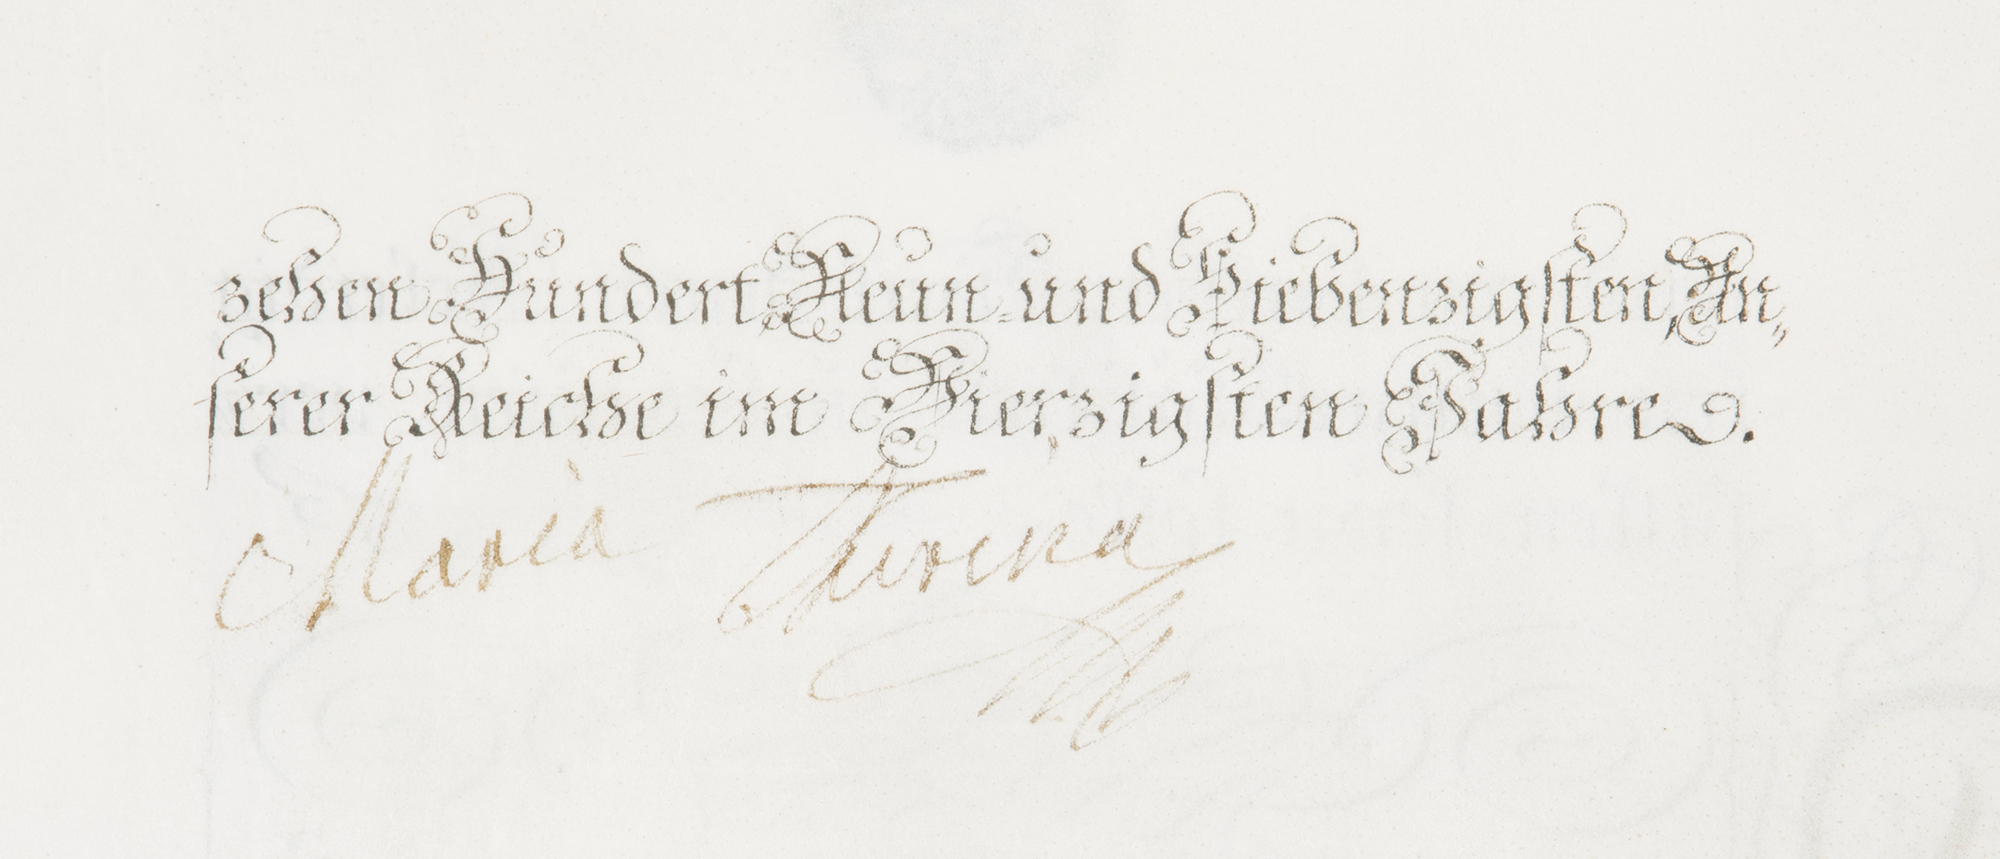 zehen Hundert Neun-und Siebenzigsten, Un„
serer Reiche im Vierzigsten Jahre.
Maria Theresia